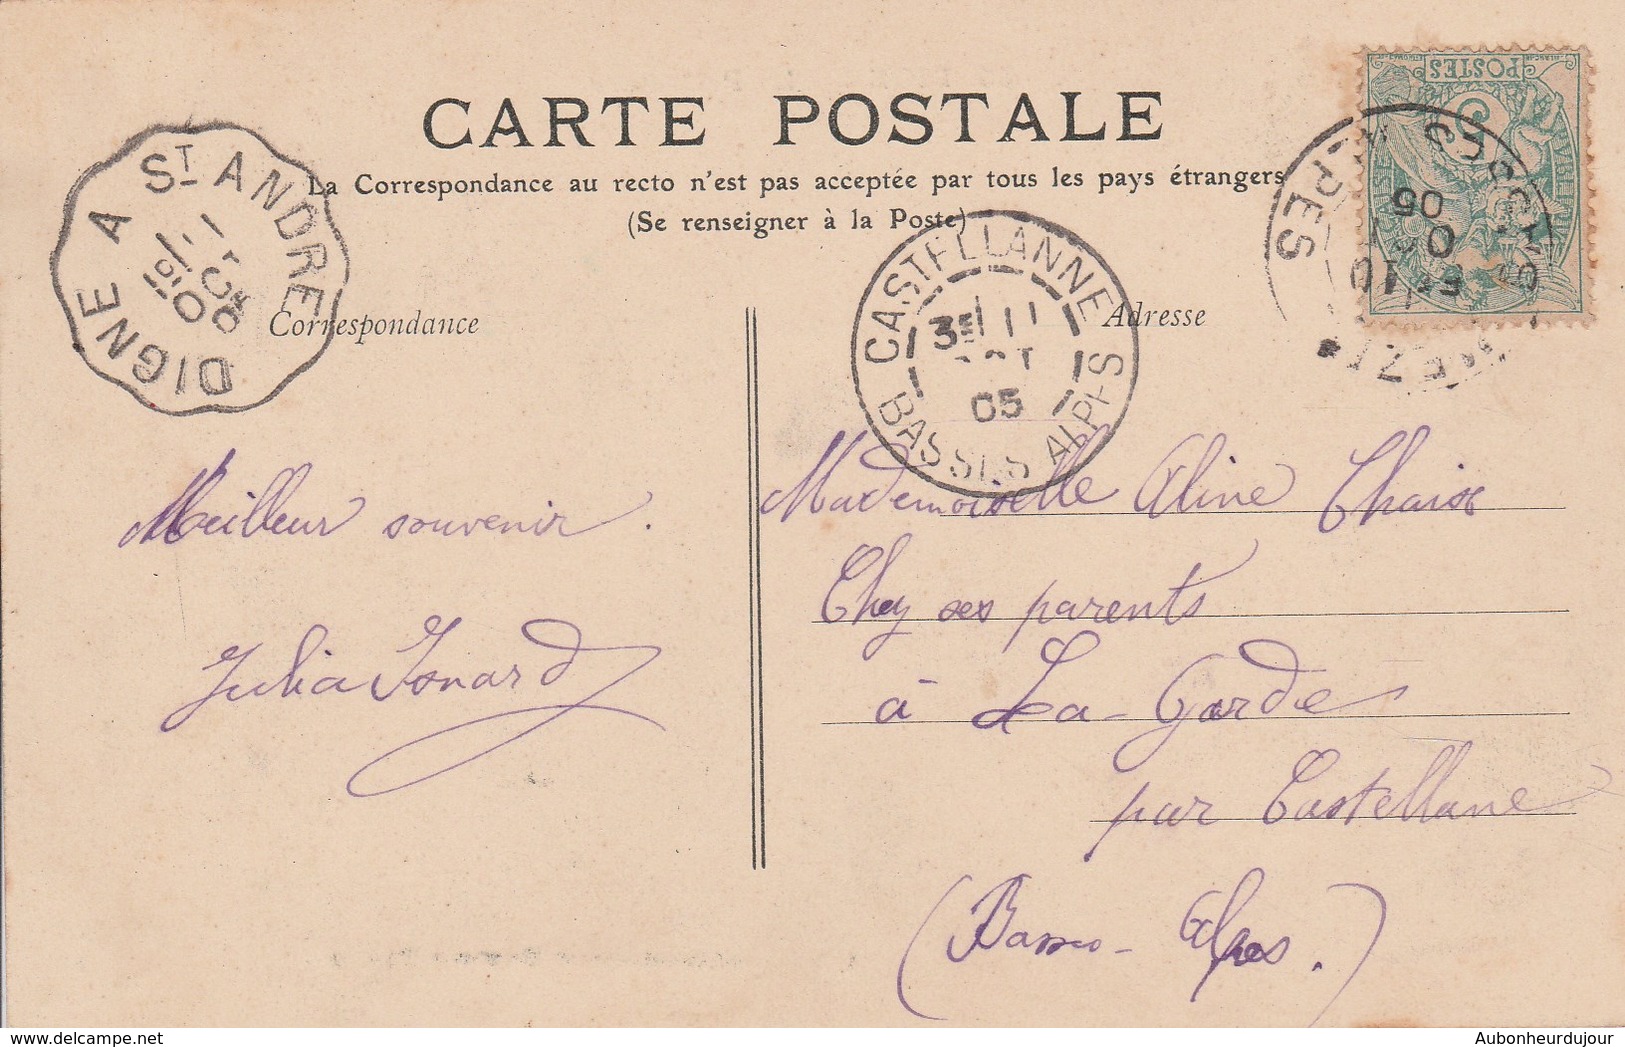 CARTE POSTALE
La Correspondance au recto n'est pas acceptée par tous les pays étrangers
(Se renseigner à la Poste)
Correspondance
Adresse
DIGNE A ST ANDRE
CASTELLANNE
3E 11
05
BASSES ALPES
POSTES
5
05
10
Meilleur souvenir.
Julia Isnard
Mademoiselle Aline Chaise
Chez ses parents
à La-Garde
par Castellane
(Basses-Alpes.)
Aubonheurdujour